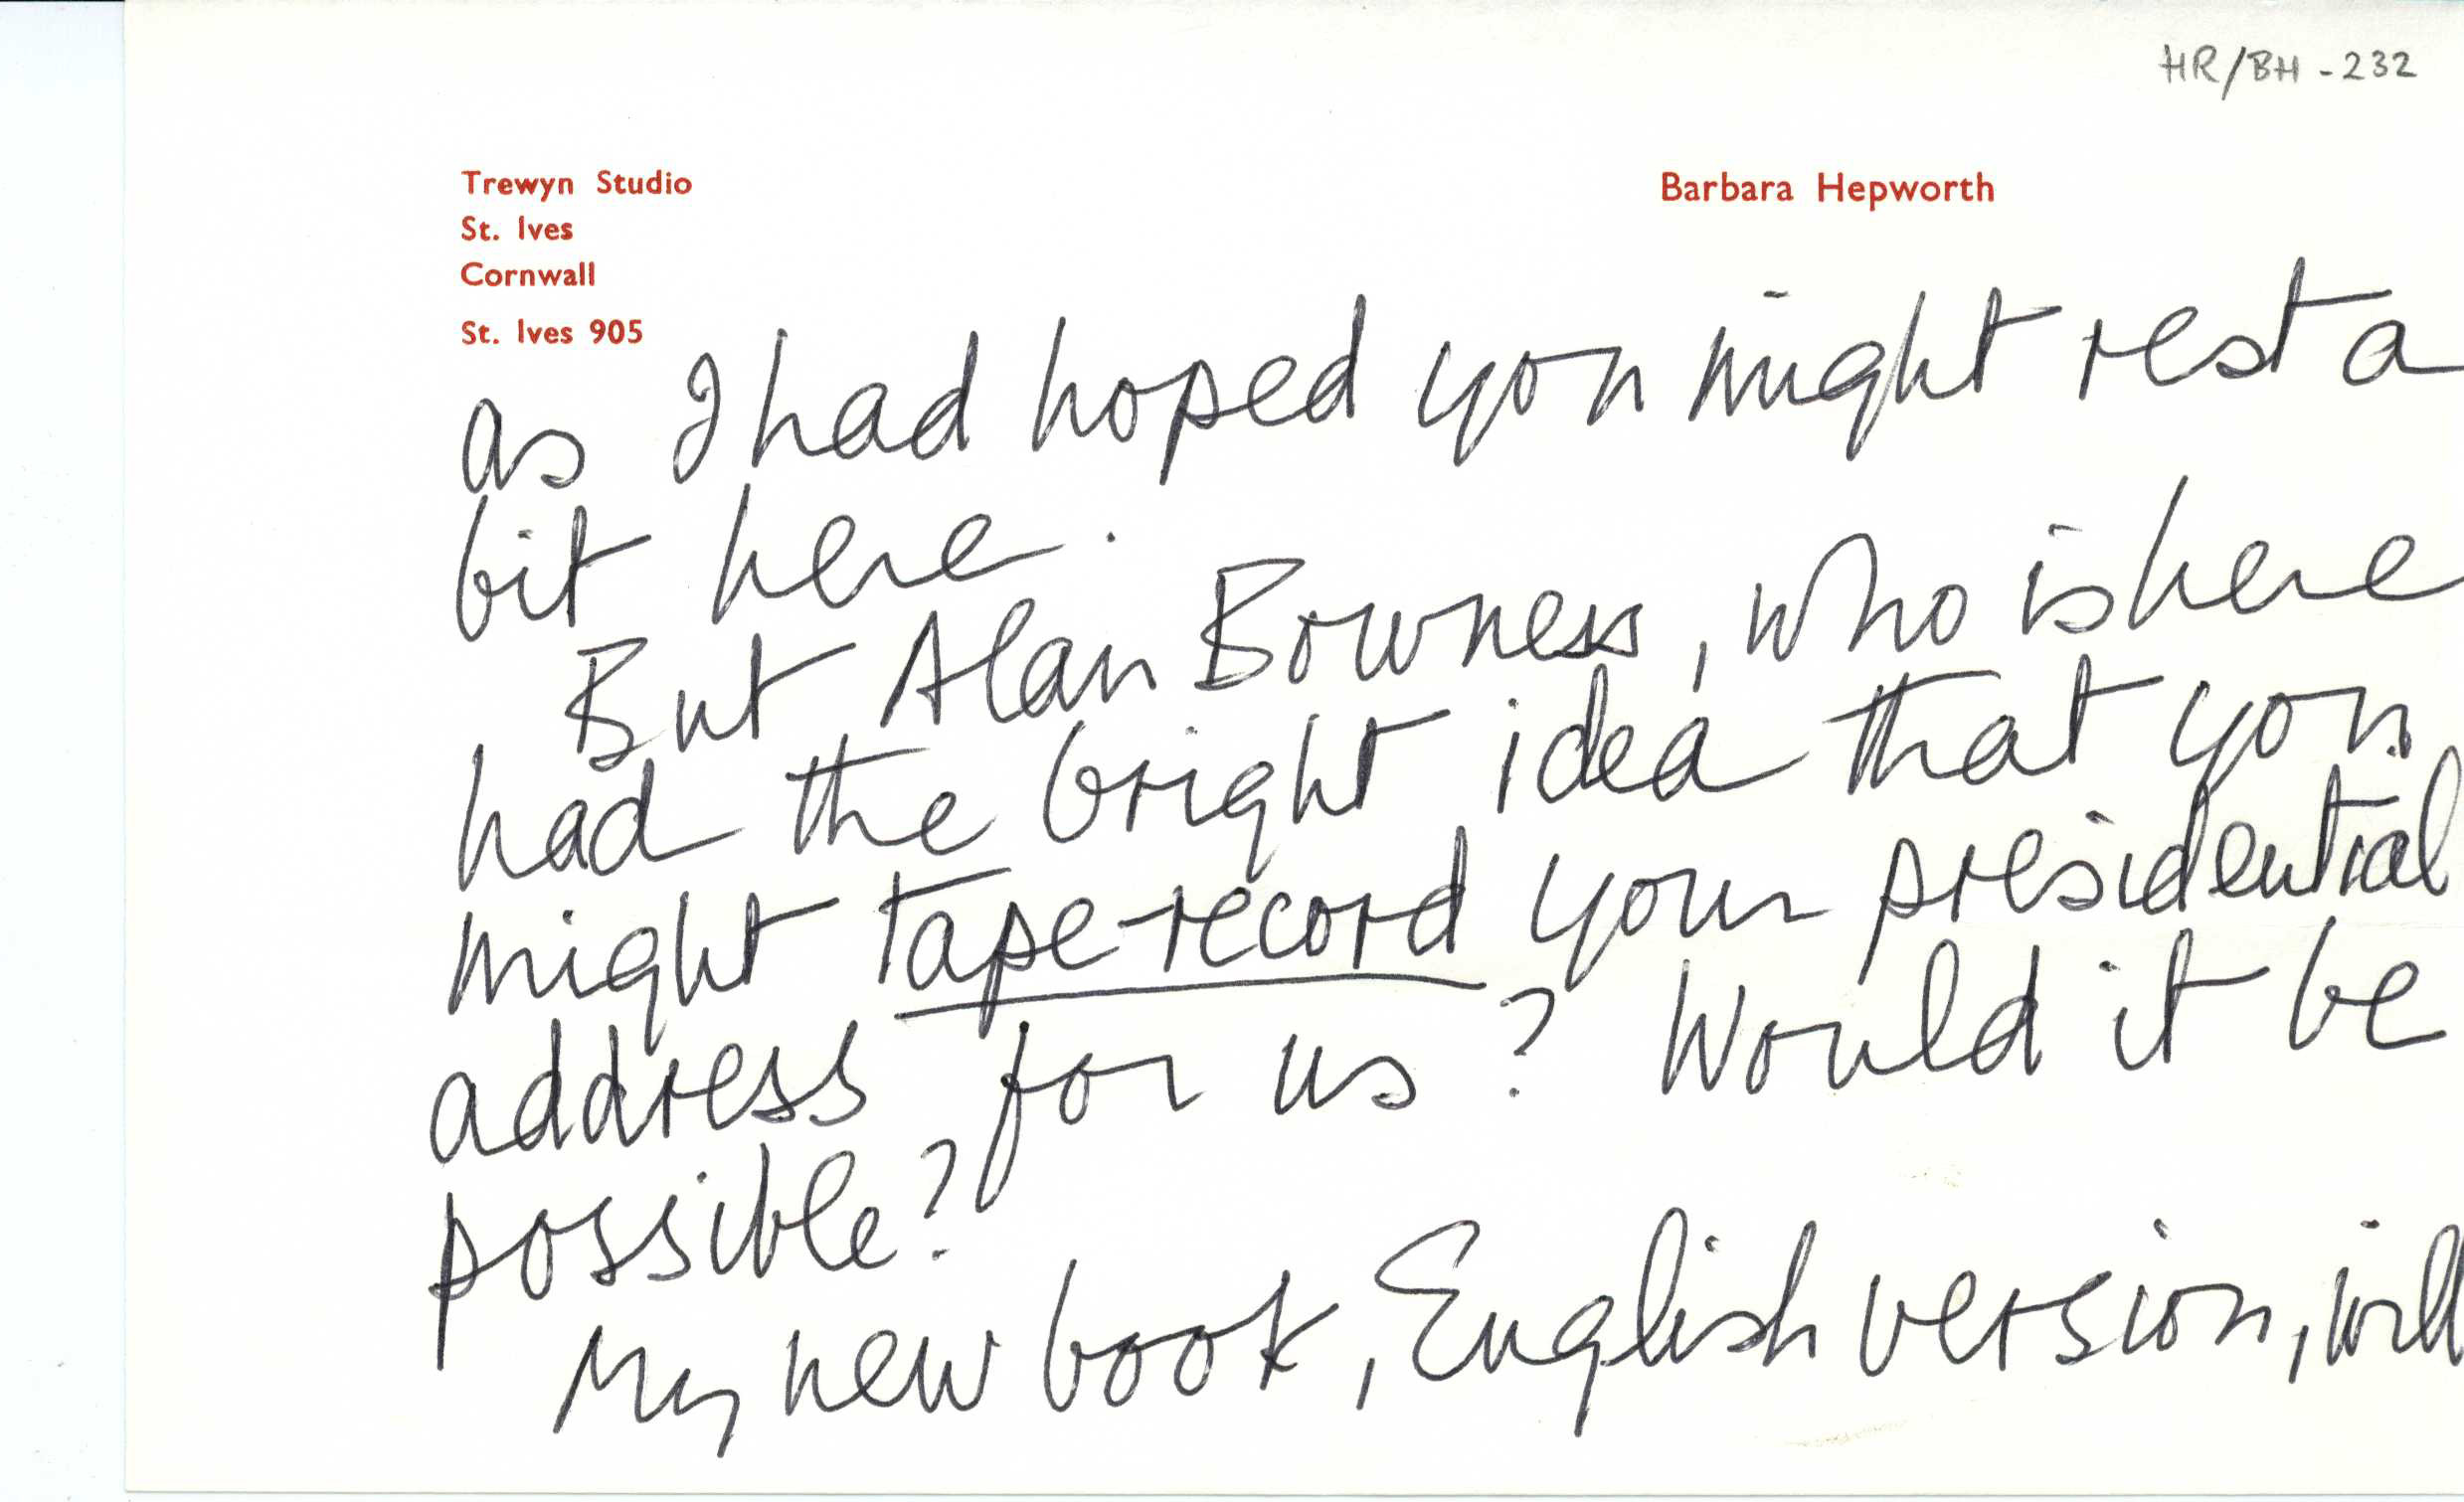 HR/BH-232
Trewyn Studio
St. Ives
Cornwall
St. Ives 905
Barbara Hepworth
as I had hoped you might rest a
bit here.
But Alan Bowness, who is here
had the bright idea that you
might tape-record your presidential
address for us? Would it be
possible?
My new book, English version, will